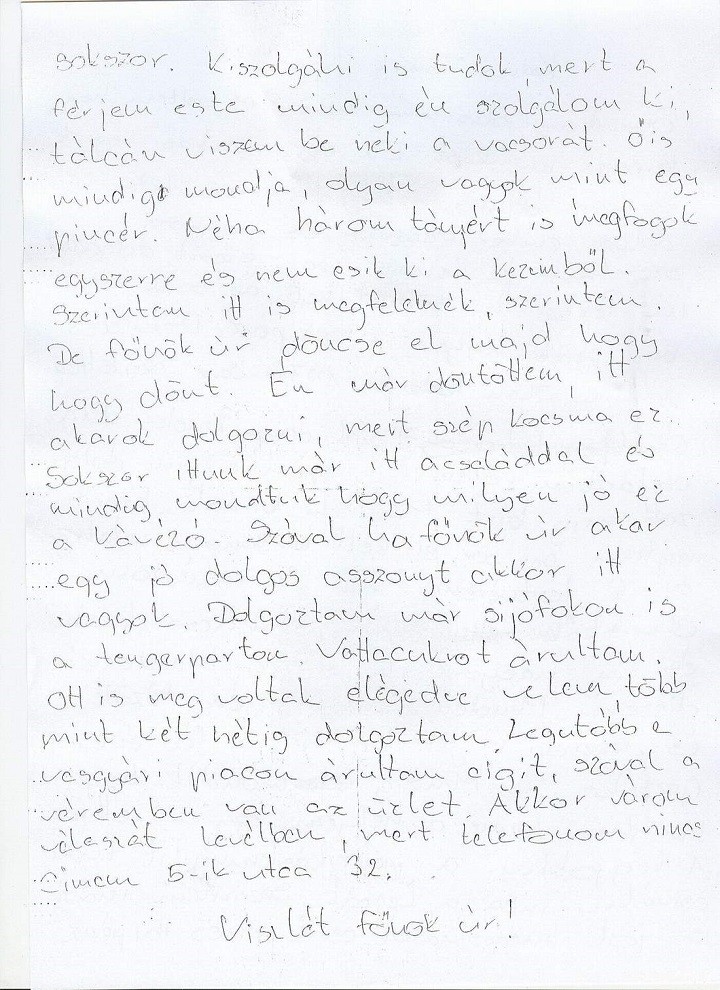 sokszor. Kiszolgálni is tudok, mert a
férjem este mindig én szolgálom ki,
tálcán viszem be neki a vacsorát. Ő is
mindig mondja, olyan vagyok mint egy
pincér. Néha három tányért is megfogok
egyszerre és nem esik ki a kezemből.
Szerintem itt is megfelelnék, szerintem.
De főnök úr döncse el majd hogy
hogy dönt. Én már döntöttem, itt
akarok dolgozni, mert szép kocsma ez.
Sokszor ittunk már itt acsaláddal és
mindig mondtuk hogy milyen jó ez
a kávézó. Szóval ha főnök úr akar
egy jó dolgos asszonyt akkor itt
vagyok. Dolgoztam már sijófokon is
a tengerparton. Vattacukrot árultam.
Ott is meg voltak elégedve velem, több
mint két hétig dolgoztam. Legutóbb a
vasgyári piacon árultam cigit, szóval a
véremben van az üzlet. Akkor várom
válaszát levélben, mert telefonom nincs
Cimem 5-ik utca 32.
Viszlát főnök úr!